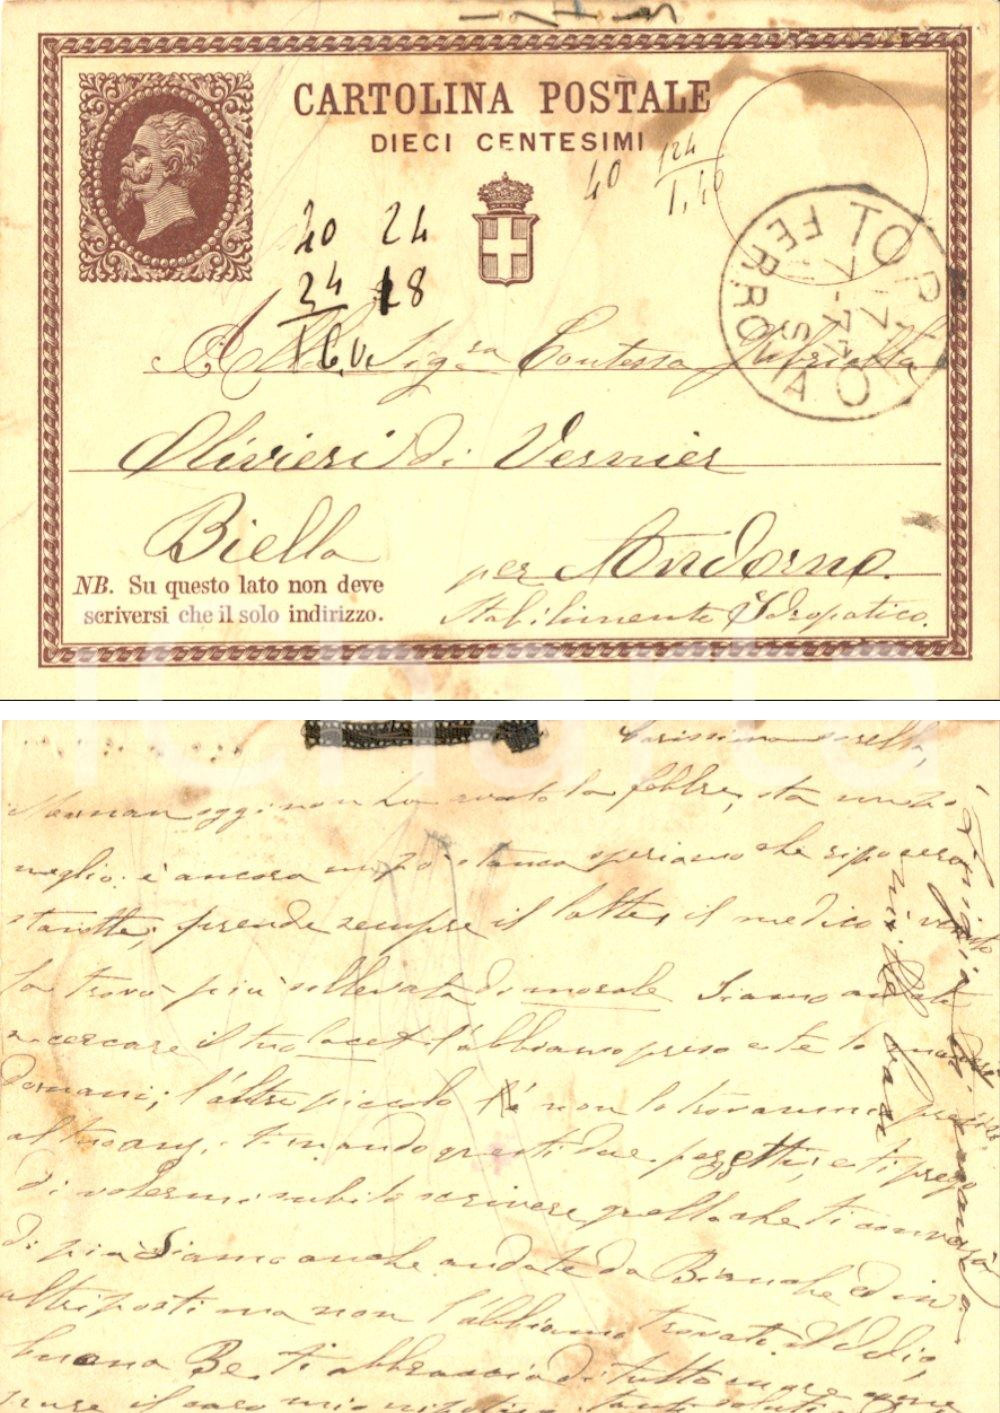 CARTOLINA POSTALE
DIECI CENTESIMI
40 124
1,40
20 24
24 18
TOPLO
FERROVIA
Alla Sigra Contessa Gabriella
Olivieri di Vernier
Biella
per Andorno.
Stabilimento Idropatico.
NB. Su questo lato non deve
scriversi che il solo indirizzo.
Carissima sorella,
Maman oggi non ha avuto la febbre, sta un po'
meglio: è ancora un po' stanca speriamo che riposerà
stanotte; prende sempre il latte, il medico
la trovò più sollevata di morale Siamo andate
a cercare il tuo lacet l'abbiamo preso e te lo
domani; l'altro piccolo non lo trovammo
ti mando questi due pezzetti, e ti prego
di volermi subito scrivere quello che ti converrà
di più Siamo anche andate da Bianche ed in
altri posti ma non l'abbiamo trovato. Addio,
buona Be. ti abbraccio di tutto cuore come
pure il caro mio nipotino tanti saluti